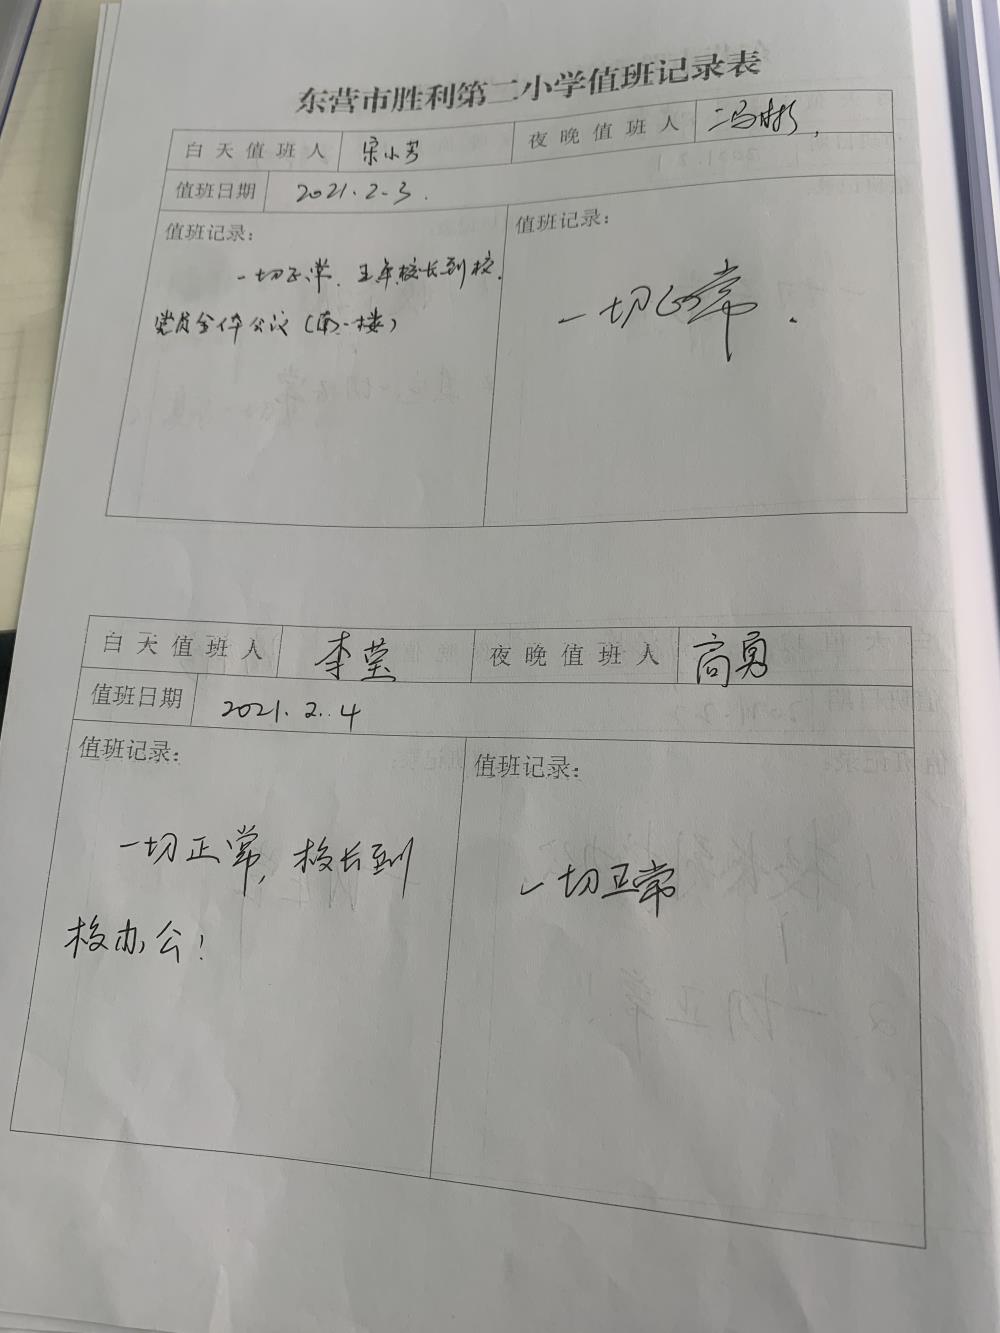 东营市胜利第二小学值班记录表
白天值班人 宋小芳 夜晚值班人 冯彬
值班日期 2021.2-3.
值班记录:
一切正常. 王年校长到校.
党员全体会议(南一楼)
值班记录:
一切正常.
白天值班人 李莹 夜晚值班人 高勇
值班日期 2021.2.4
值班记录:
一切正常, 校长到
校办公!
值班记录:
一切正常